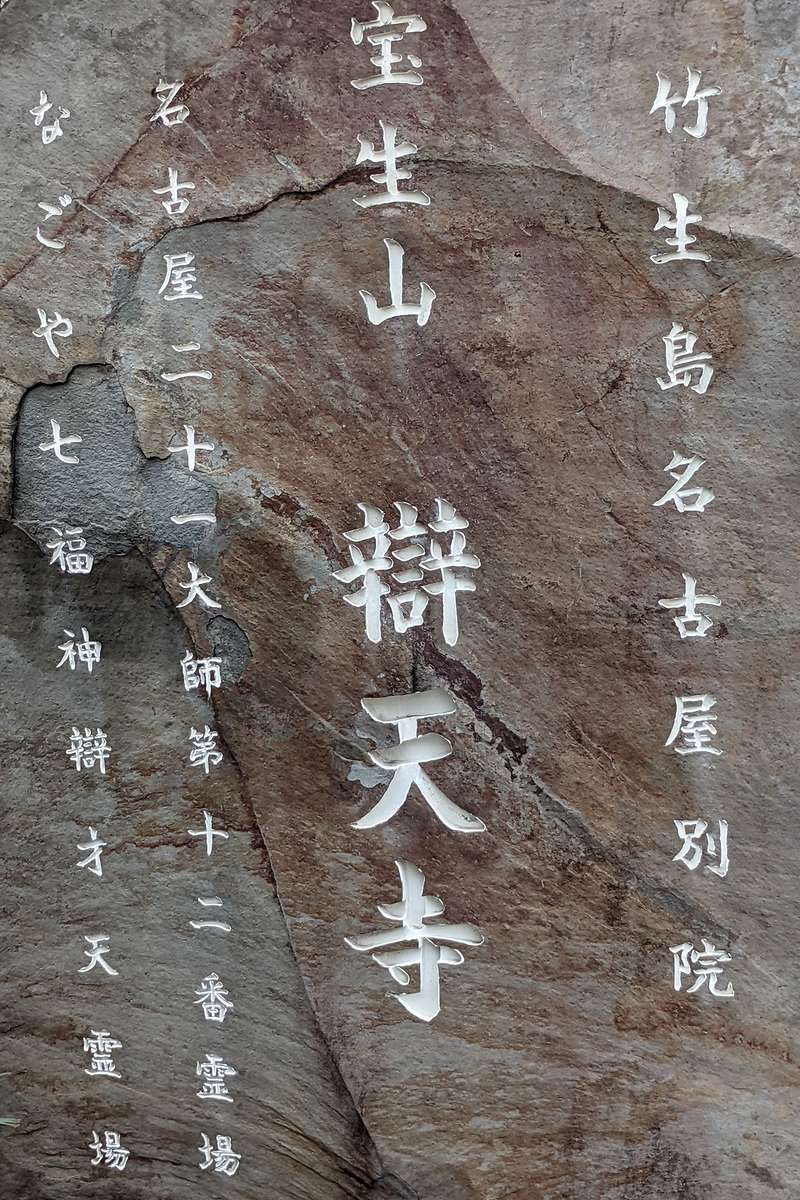 竹生島名古屋別院
宝生山 辯天寺
名古屋二十一大師第十二番霊場
なごや七福神辯才天霊場